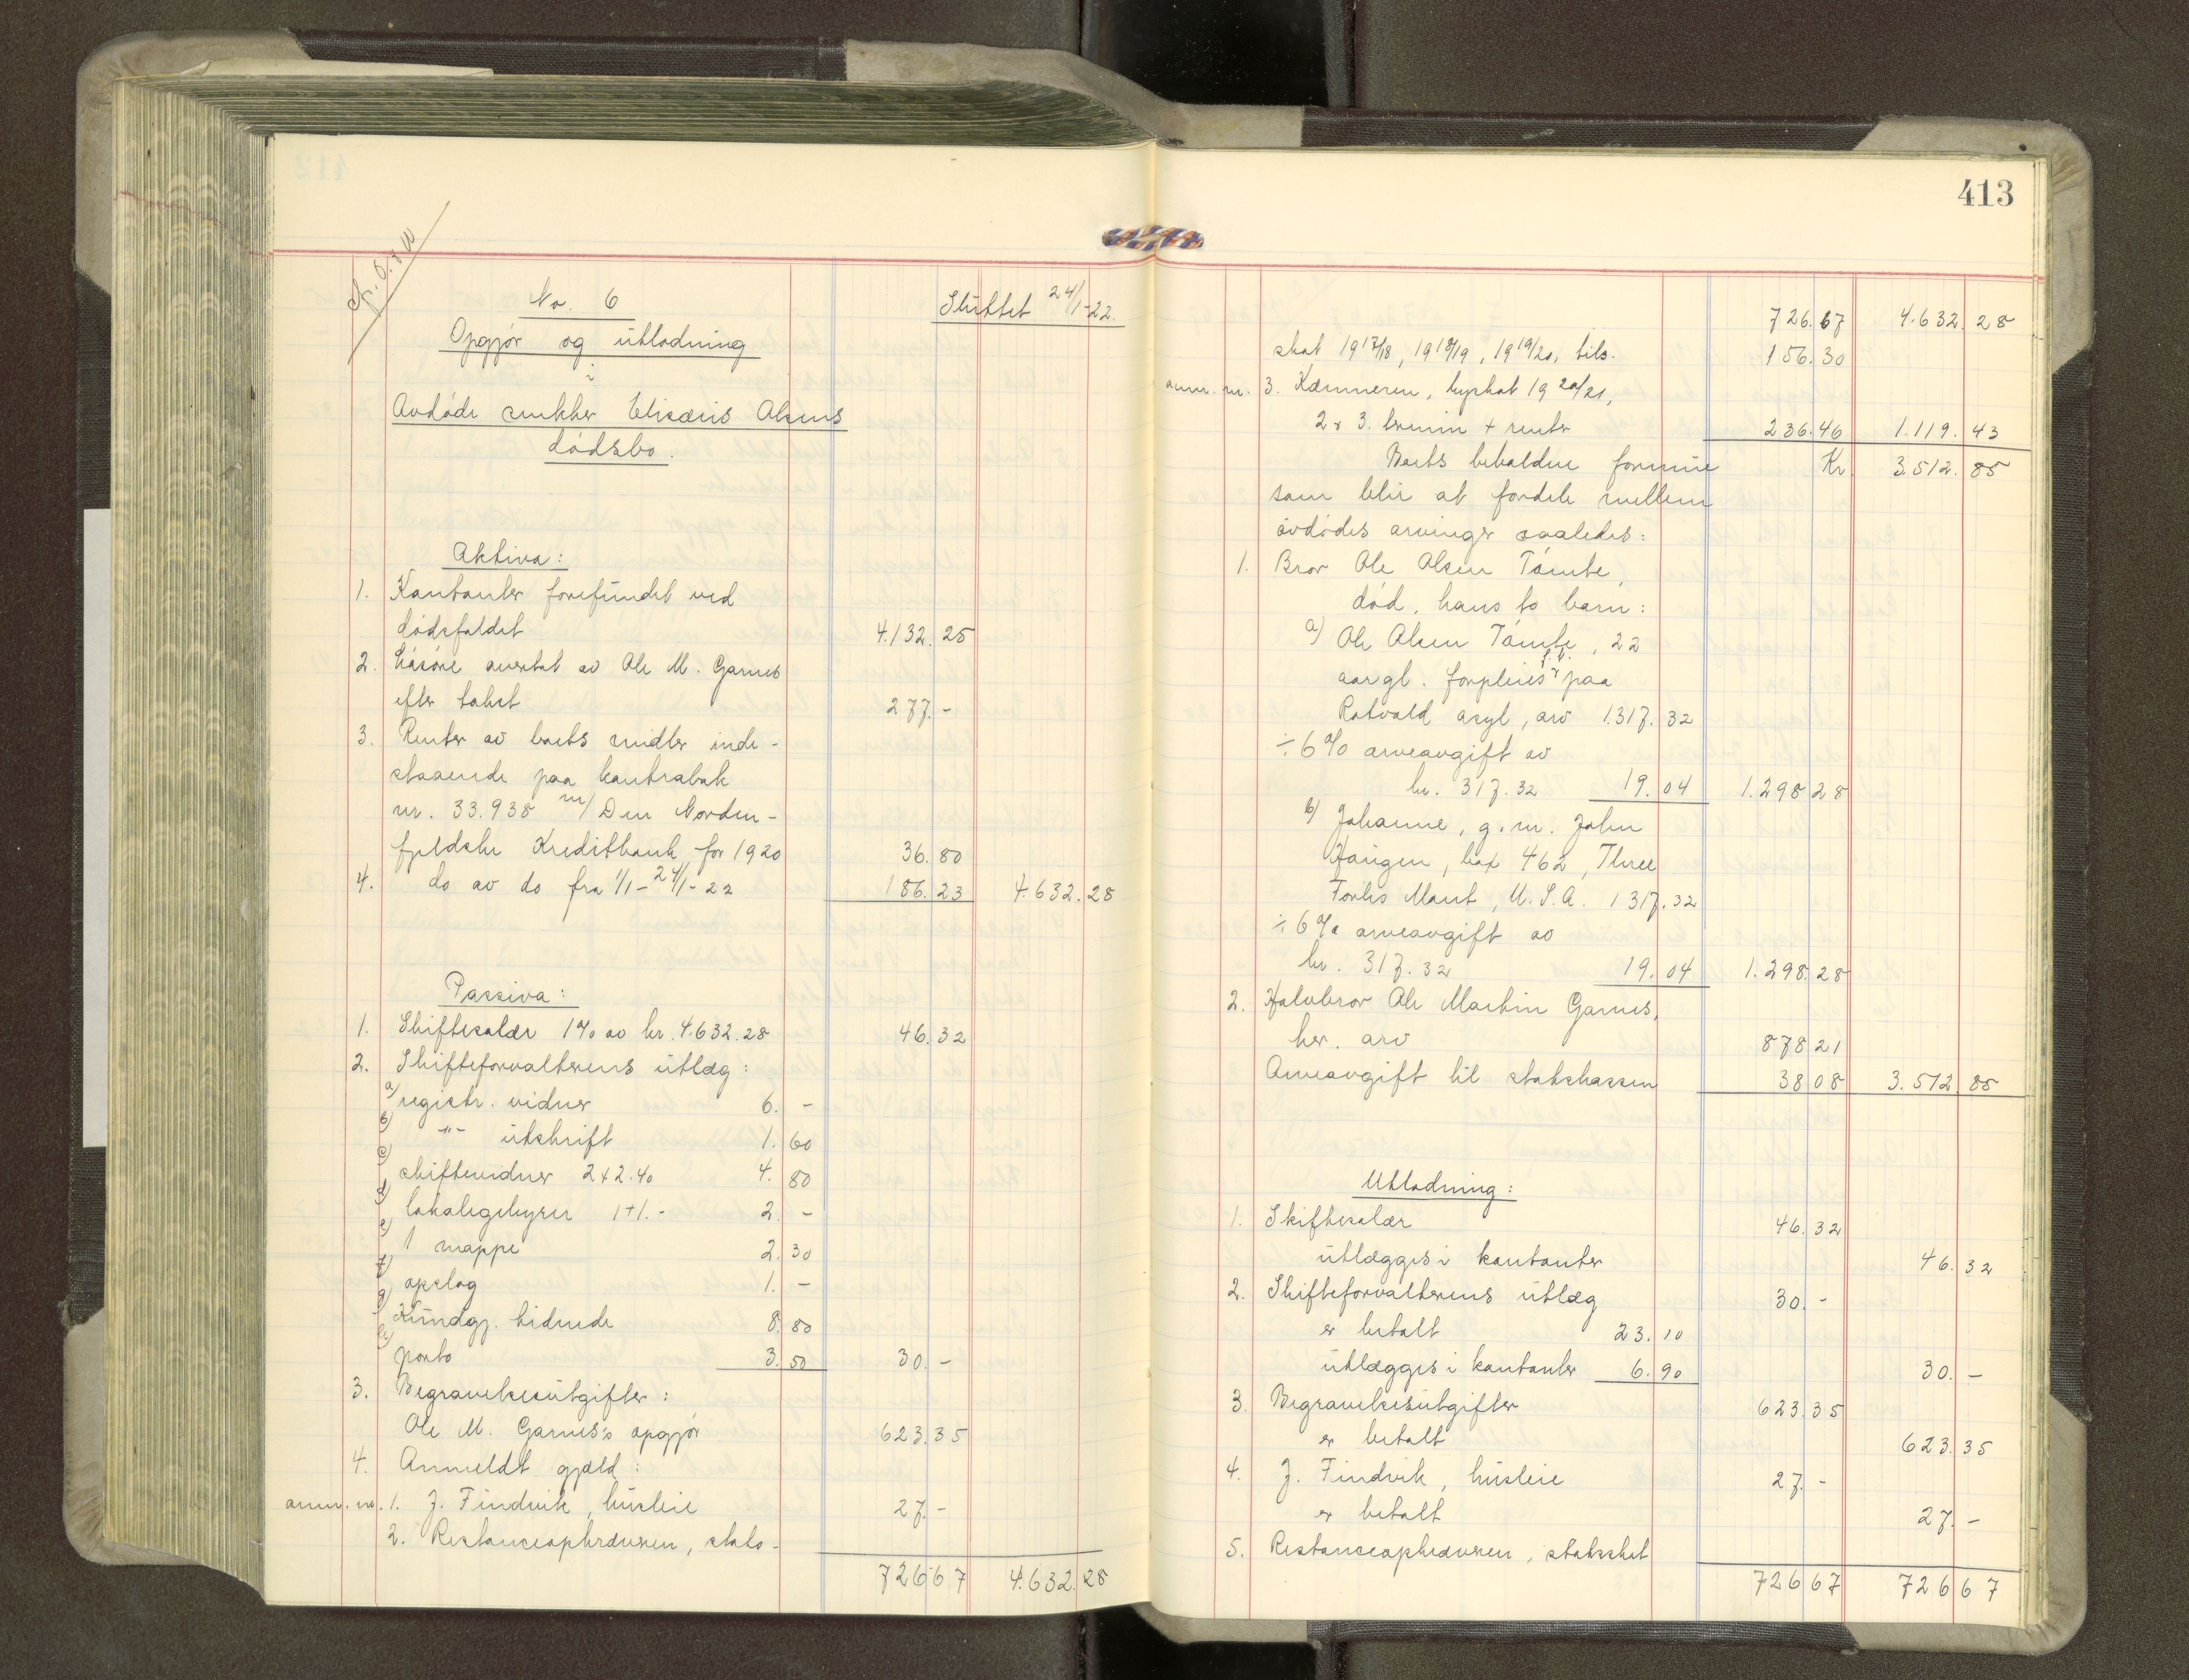 No. 6
Sluttet 24/1-22.
Opgjør og utlodning
i
Avdøde enkke Elisæus Olsens
dødsbo.
Aktiva:
1. Kontanter forefundet ved
dødsfaldet 4.132.25
2. Løsøre overtat av Ole M. Garnes
efter takst 277.-
3. Renter av boets midler inde-
staaende paa kontrabok
nr. 33.938 m/ Den Norden-
fjeldske Kreditbank for 1920 36.80
4. do av do fra 1/1-24/1-22 186.23 4.632.28
Passiva:
1. Skiftesalær 1% av kr. 4.632.28 46.32
2. Skifteforvalterens utlæg:
a) registr. vidner 6. -
b) -"- utskrift 1.60
c) skiftevidner 2x2.40 4.80
d) lokalegebyrer 1+1.- 2. -
e) 1 mappe 2.30
f) opslag 1. -
g) Kundgj. tidende 8.80
h) porto 3.50 30.-
3. Begravelsesutgifter:
Ole M. Garnes's opgjør 623.35
4. Anmeldt gjæld:
anm. nr. 1. J. Findvik, husleie 27.-
2. Restanceopkræveren, stats-
726.67 4.632.28
413
726.67 4.632.28
skat 1917/18, 1918/19, 1919/20, tils. 156.30
anm. nr. 3. Kæmneren, byskat 1920/21,
2 & 3. termin + renter 236.46 1.119.43
Boets beholdne formue Kr. 3.512.85
som blir at fordele mellem
avdødes arvinger saaledes:
1. Bror Ole Olsen Tømte,
død, hans to barn:
a) Ole Olsen Tømte, 22
aar gl. forpleies f.t. paa
Rotvold asyl, arv 1.317.32
÷ 6% arveavgift av
kr. 317.32 19.04 1.298.28
b) Johanne, g.m. John
Haugen, box 462, Three
Forks Mont, U.S.A. 1317.32
÷ 6% arveavgift av
kr. 317.32 19.04 1.298.28
2. Halvbror Ole Martin Garnes,
her. arv 878.21
Arveavgift til statskassen 38.08 3.512.85
Utlodning:
1. Skiftesalær 46.32
utlægges i kontanter 46.32
2. Skifteforvalterens utlæg 30.-
er betalt 23.10
utlægges i kontanter 6.90 30.-
3. Begravelsesutgifter 623.35
er betalt 623.35
4. J. Findvik, husleie 27.-
er betalt 27.-
5. Restanceopkræveren, statsskat
726.67 726.67